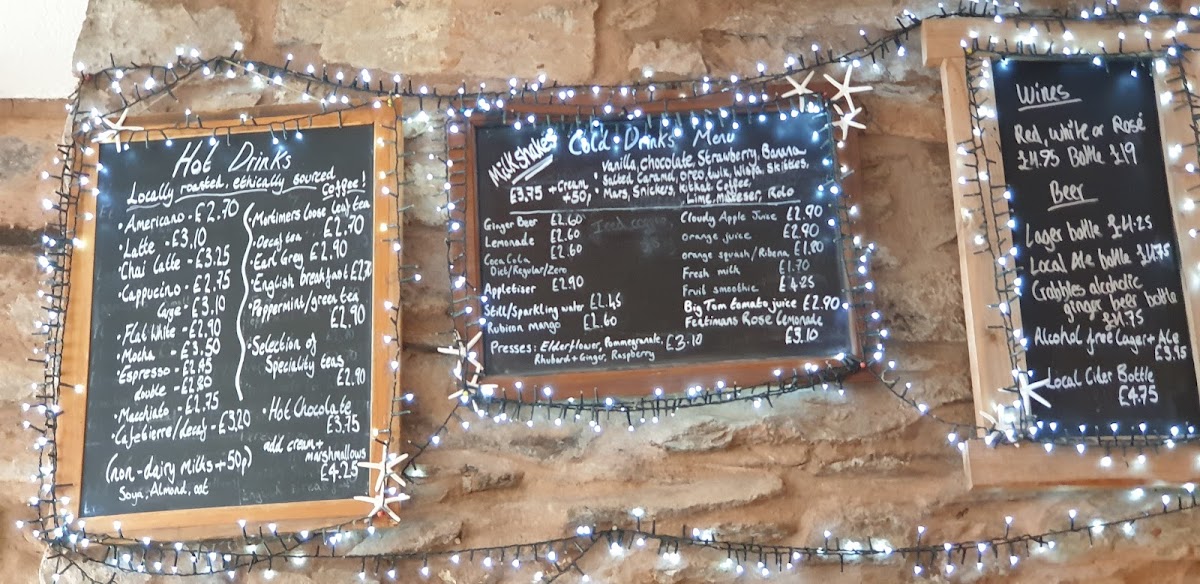 Hot Drinks
Locally roasted, ethically sourced
coffee!
• Americano - £2.70
• Latte - £3.10
• Chai Latte - £3.25
• Cappucino - £2.75
Large - £3.10
• Flat White - £2.90
• Mocha - £3.50
• Espresso - £2.45
double - £2.80
• Macchiato - £2.75
• Cafetierre/decaf - £3.20
(non-dairy milks +50p)
Soya, Almond, oat
• Mortimers loose leaf tea
£2.70
• Decaf tea
• Earl Grey £2.90
• English breakfast £2.70
• Peppermint/green tea
£2.90
• Selection of
Speciality teas
£2.90
• Hot Chocolate
£3.75
add cream +
marshmallows
£4.25
Cold Drinks Menu
Milkshakes
£3.75 + Cream
+50p
• Vanilla, chocolate, Strawberry, Banana
• Salted Caramel, oreo, twix, Wispa, Skittles,
• Mars, Snickers, Kitkat, Coffee,
Lime, malteser, Rolo
Ginger Beer £2.60
Lemonade £2.60
Coca Cola £2.60
Diet/Regular/Zero
Appletiser £2.90
Still/Sparkling water £2.45
Rubicon mango £2.60
Presses: Elderflower, Pommegranate, £3.10
Rhubard+Ginger, Raspberry
Iced coffee
Cloudy Apple Juice £2.90
orange juice £2.90
orange squash/Ribena £1.80
Fresh milk £1.70
Fruit smoothie £4.25
Big Tom tomato juice £2.90
Feetimans Rose Lemonade
£3.10
Wines
Red, white or Rosé
£4.95 Bottle £19
Beer
Lager bottle £4.25
Local Ale bottle £4.75
Crabbies alcoholic
ginger beer bottle
£4.75
Alcohol free Lager + Ale
£3.95
Local Cider Bottle
£4.75